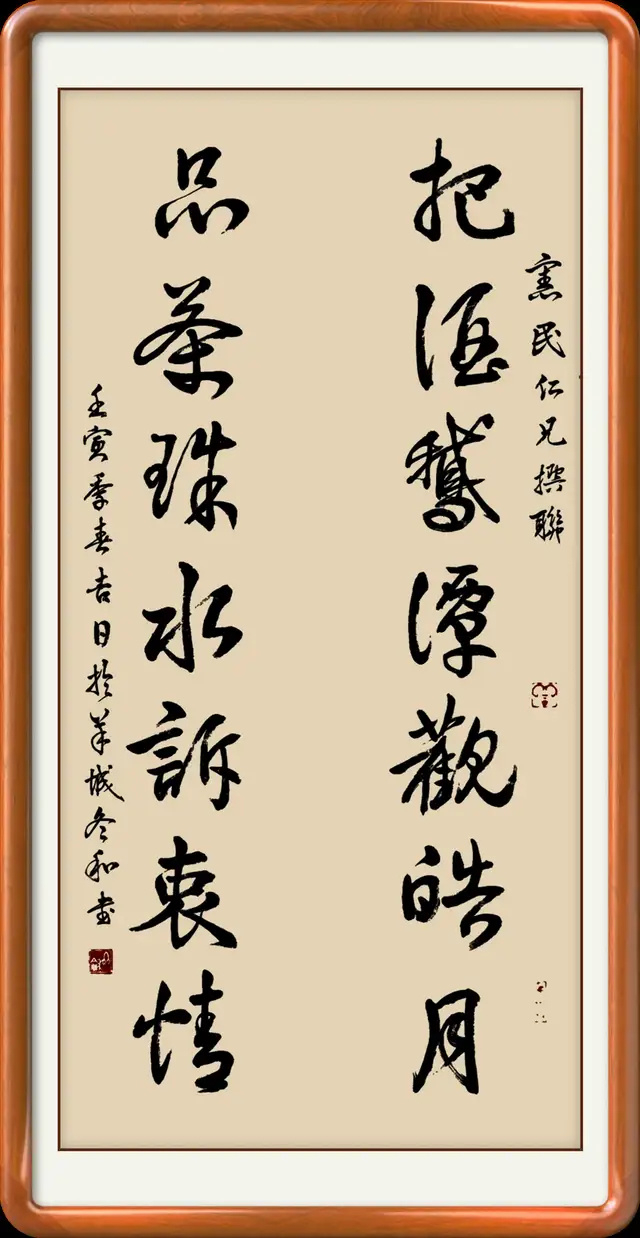 憲民仁兄撰聯
把酒鵝潭觀皓月
品茶珠水訴衷情
壬寅季春吉日於羊城冬和書